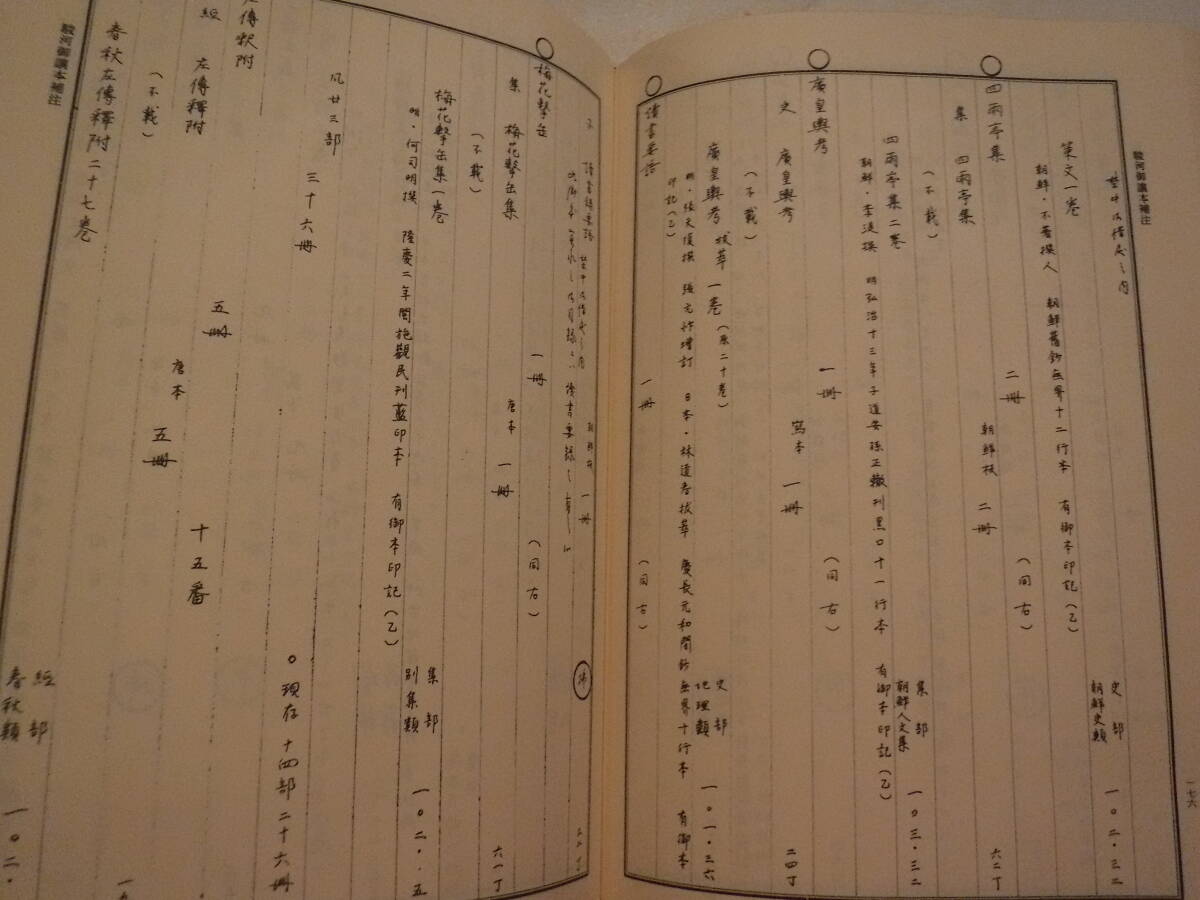 駿河御讓本補注
策文一卷
朝鮮・不著撰人　朝鮮舊鈔無界十二行本　有御本印記(乙)
史部
朝鮮史類
一〇二・三二
二冊
(同右)
四雨亭集
集　四雨亭集
朝鮮板　二冊
六二丁
(不載)
四雨亭集二卷
朝鮮・李湜撰　明弘治十三年子道安孫正轍刊黑口十一行本　有御本印記(乙)
集部
朝鮮人文集
一〇三・三二
一冊
(同右)
廣皇輿考
史　廣皇輿考
寫本　一冊
二四丁
(不載)
廣皇輿考拔萃一卷(原二十卷)
明・張天復撰　張元忭增訂　日本・林道春拔萃　慶長元和間鈔無界十行本　有御本
印記(乙)
史部
地理類
一〇一・三六
讀書要語
一冊
(同右)
一七六
梅花擊缶
一冊
(同右)
集　梅花擊缶集
唐本　一冊
六一丁
(不載)
梅花擊缶集一卷
明・何司明撰　隆慶二年閻施觀民刊藍印本　有御本印記(乙)
集部
別集類
一〇二・五
凡廿三部
三十六冊
〇現存　十四部二十六冊
左傳釈附
五冊
十五番
經　左傳釋附
唐本　五冊
(不載)
春秋左傳釋附二十七卷
經部
春秋類
一〇二・
駿河御讓本補注